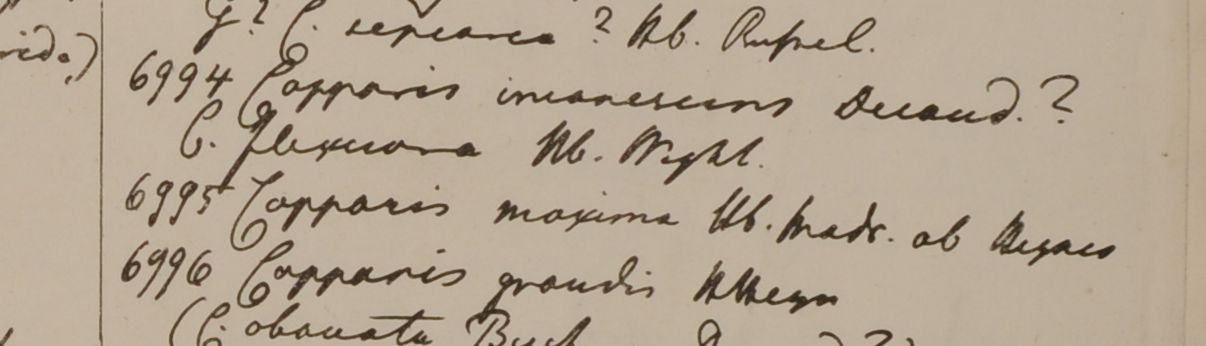 g? C. sepiarea? Hb. Russel.
rida)
6994 Capparis incanescens Decand.?
C. flexuosa Hb. Wight.
6995 Capparis maxima Hb. Madr. ab Heyneo
6996 Capparis grandis HHeyn
(C. obovata Buch